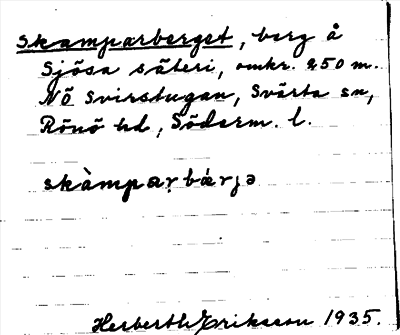 Skamparberget, berg å
Sjösa säteri, omkr. 250 m.
NÖ Svirstugan, Svärta sn,
Rönö hd, Söderm. l.
skàmpar bárjə
Herberth Erikson 1935.